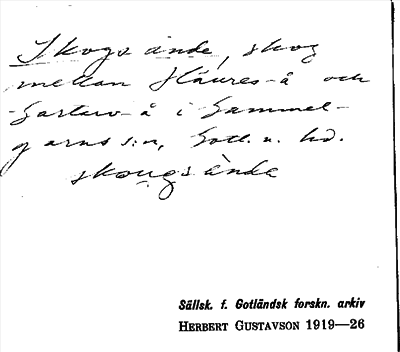 Skogs ände, skog
mellan Haures-å och
Gartarv-å i Gammel-
garns s:n, Gotl. n. hd.
skou̯gsända
Sällsk. f. Gotländsk forskn. arkiv
HERBERT GUSTAVSON 1919—26